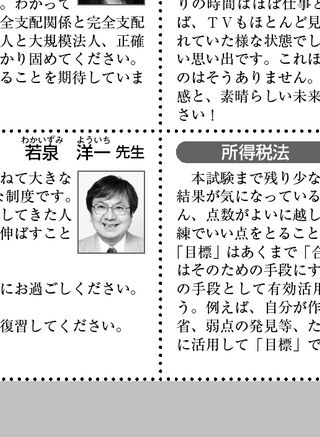 。わかって
全支配関係と完全支配
人と大規模法人、正確
かり固めてください。
ることを期待していま
わかいずみ よういち
若泉 洋一 先生
ねて大きな
な制度です。
してきた人
伸ばすこと
にお過ごしください。
復習してください。
りの時間はほぼ仕事と
ば、ＴＶもほとんど見
れていた様な状態でし
い思い出です。これほ
のはそうありません。
感と、素晴らしい未来
さい！
所得税法
本試験まで残り少な
結果が気になっている
ん、点数がよいに越し
練でいい点をとること
「目標」はあくまで「合
はそのための手段にす
の手段として有効活用
う。例えば、自分が作
省、弱点の発見等、た
に活用して「目標」で